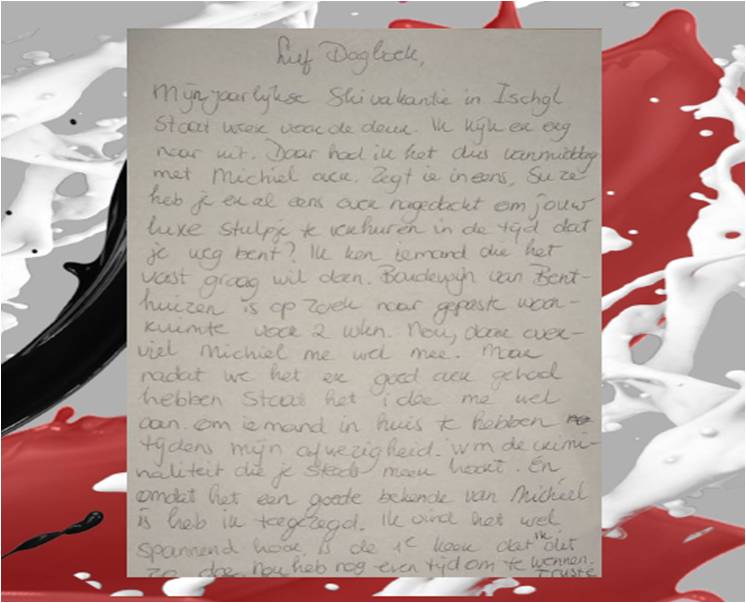 Lief Dagboek,
Mijn jaarlijkse Skivakantie in Ischgl
staat weer voor de deur. Ik kijk er erg
naar uit. Daar had ik het dus vanmiddag
met Michiel over. Zegt ie ineens, Suze
heb je er al eens over nagedacht om jouw
luxe stulpje te verhuren in de tijd dat
je weg bent? Ik ken iemand die het
vast graag wil doen. Boudewijn van Bent-
huizen is op zoek naar gepaste woon-
ruimte voor 2 wkn. Nou, daar over-
viel Michiel me wel mee. Maar
nadat we het er goed over gehad
hebben staat het idee me wel
aan. om iemand in huis te hebben
tijdens mijn afwezigheid. ivm de crimi-
naliteit die je steeds meer hoort. En
omdat het een goede bekende van Michiel
is heb ik toegezegd. Ik vind het wel
spannend hoor, is de 1e keer dat ik dit
zo doe. Nou heb nog even tijd om te wennen.
Truste